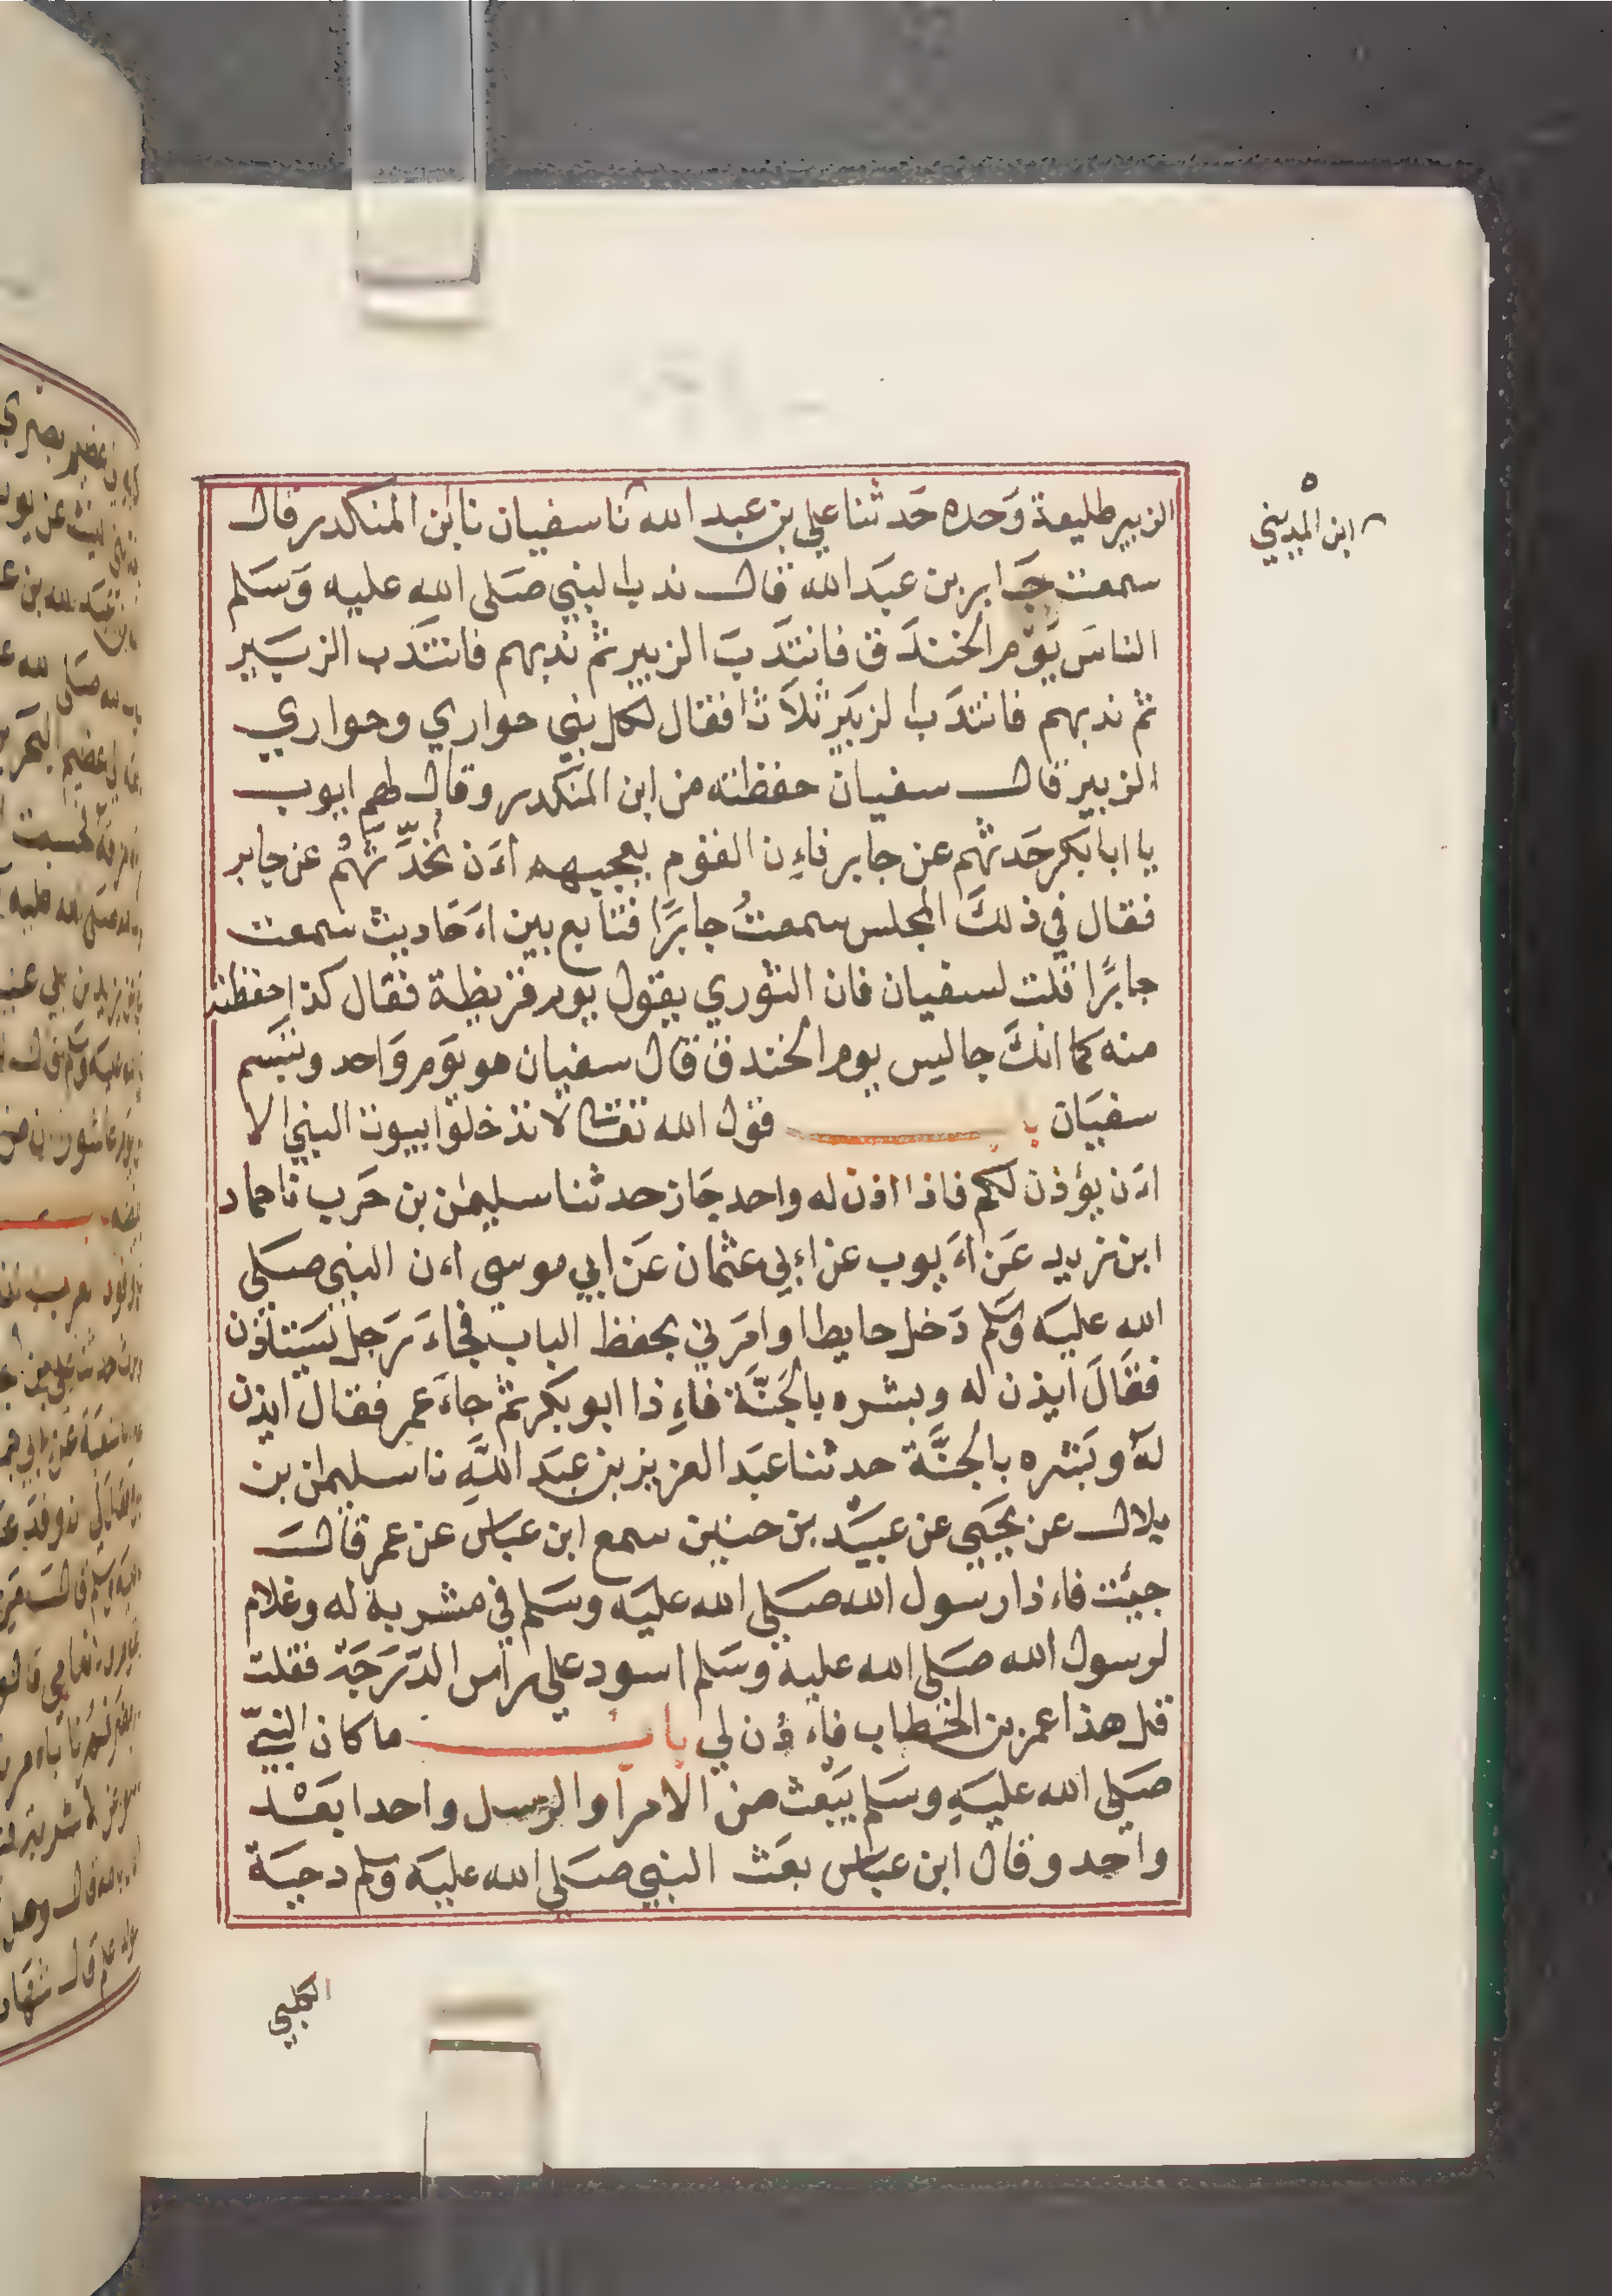 الزبير طليعة وَحده حَدثنا علي بن عبد الله نا سفيان نا ابن المنكدر قال
سمعت جَابر بن عبَد الله قال ندب النبي صَلى الله عليه وَسَلم
الناسَ يَوْم الخندَق فانتَدَبَ الزبير ثم ندبهم فانتَدَب الزبَير
ثم ندبهم فانتدَب الزبَير ثلاَثا فقال لكل نبي حواري وحواري
الزبير قال سفيان حفظته من ابن المنكدر وقال لهم ايوب
يا ابا بَكر حَدثهم عن جابر فاءِن القوم يعجبهم اءَن تحَدِّثَهُم عن جابر
فقال في ذلكَ المجلس سمعتُ جابرًا فتابع بين اءَحَاديث سمعت
جابرًا قلت لسفيان فان الثوري يقول يوم قريظة فقال كذا حفظته
منه كما انكَ جاليس يوم الخندق قال سفيان هو يَوم وَاحد وتبَسم
سفيَان باب قوْل الله تعالى لا تدخلوا بيوت النبي الا
اءَن يؤذن لكم فاذا اذن له واحد جَاز حدثنا سليمٰن بن حَرب نا حماد
ابن زيد عَن اءَيوب عن اءبي عثمان عَن ابي موسى اءن النبي صَلى
الله عليَه وَسَلم دَخل حايطا وامَرني بحفظ الباب فجاءَ رَجل يَستاذن
فقَالَ ايذن له وبشره بالجَنَّة فاءِذا ابو بَكر ثم جاءَ عمر فقال ايذن
لَهُ وبَشره بالجنَّة حدثنا عبَد العزيز بن عبَد اللَّهِ نا سليمٰن بن
بلال عن يحَيى عن عبيْد بن حنين سمع ابن عباس عن عمر قالَ
جيئت فاءذا رسول الله صَلى الله عليَه وسَلم في مشربة له وغلام
لرسول الله صَلى الله عليه وسَلم اسود على راس الدّرَجَة فقلت
قل هذا عمر بن الخطاب فاءذن لي باب ما كان النبيّ
صَلى الله عليَهِ وسَلم يَبعْث من الامرا والرسل واحدا بَعْد
واحد وقال ابن عباس بعَث النبي صَلى الله عليَه وسلم دحيَة
الكلبي
ه
ابن المديني